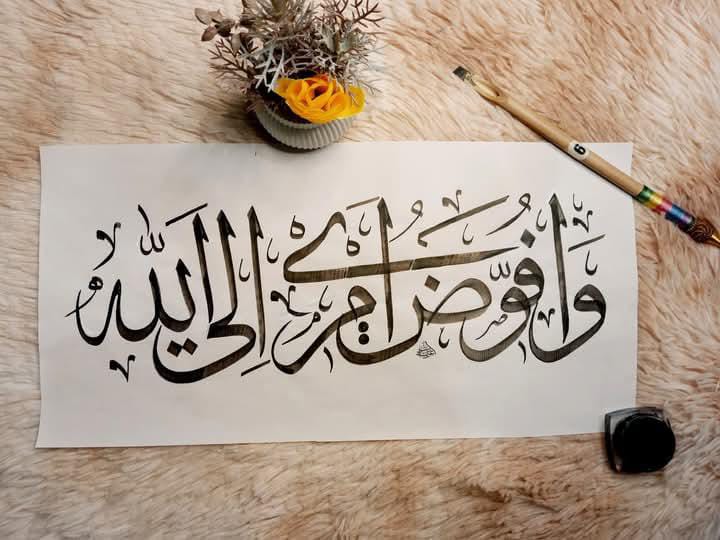 وَأُفَوِّضُ أَمْرِي إِلَى اللَّهِ
6